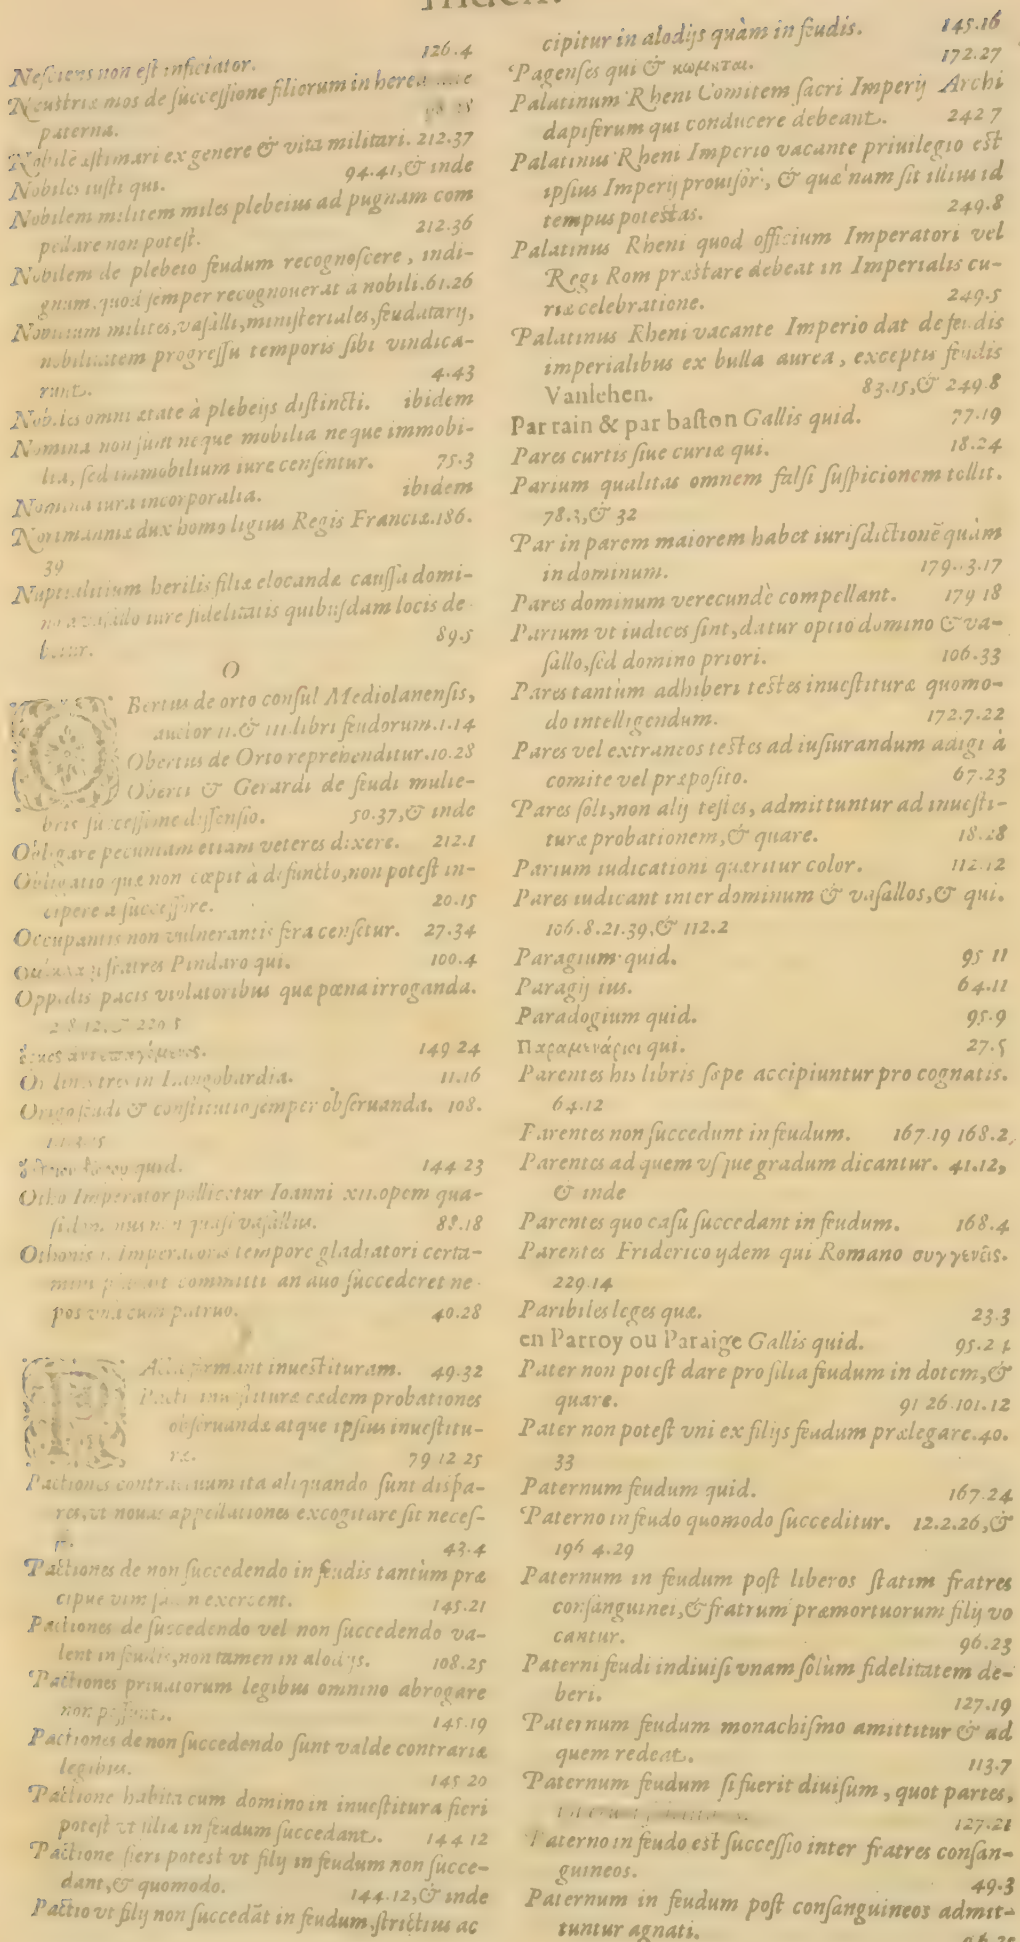 Index.
126.4
Nesciens non est inficiator.
Neustriæ mos de successione filiorum in
paterna.
Nobilē æstimari ex genere & vita militari. 212.37
Nobiles iusti qui. 94.41,& inde
Nobilem militem miles plebeius ad pugnam com
pellare non potest. 212.36
Nobilem de plebeio feudum recognoscere, indi-
gnum, quod semper recognouerat à nobili. 61.26
milites, vasalli, ministeriales, feudatarij,
nobilitatem progressu temporis sibi vindica-
runt. 4.43
Nobiles omni ætate à plebeijs distincti. ibidem
Nomina non sunt neque mobilia neque immobi-
lia, sed immobilium iure censentur. 75.3
Nomina iura incorporalia. ibidem
Normanniæ dux homo ligius Regis Franciæ. 186.
39
herilis filiæ elocandæ caussa domi-
no à vasallo iure fidelitatis quibusdam locis de
betur. 89.5
O
OBertus de orto consul Mediolanensis,
auctor II. & III. libri feudorum. 1.14
Obertus de Orto reprehenditur. 10.28
Oberti & Gerardi de feudi mulie-
bris successione dissensio. 50.37,& inde
Obligare pecuniam etiam veteres dixere. 212.1
Obligatio quæ non cœpit à defuncto, non potest in-
cipere à successore. 20.15
Occupantis non vulnerantis fera censetur. 27.34
fratres Pindaro qui. 100.4
Oppidis pacis violatoribus quæ pœna irroganda.
149 24
in Langobardia. 11.16
Origo feudi & constitutio semper obseruanda. 108.
quid. 144 23
Otho Imperator pollicetur Ioanni XII. opem qua-
si dominus non quasi vasallus. 88.18
Othonis Imperatoris tempore gladiatori certa-
mini committi an auo succederet ne-
pos vnà cum patruo. 40.28
PActa firmant inuestituram. 49.32
Pacti inuestituræ eædem probationes
obseruandæ atque ipsius inuestitu-
ræ. 79 12 25
Pactiones ita aliquando sunt dispa-
res, vt nouas appellationes excogitare sit neces-
43.4
Pactiones de non succedendo in feudis tantùm præ
cipue vim suam exercent. 145.21
Pactiones de succedendo vel non succedendo va-
lent in feudis, non tamen in alodijs. 108.25
Pactiones priuatorum legibus omnino abrogare
non possunt. 145.19
Pactiones de non succedendo sunt valde contrariæ
legibus. 145 20
Pactione habita cum domino in inuestitura fieri
potest vt filiæ in feudum succedant. 144 12
Pactione fieri potest vt filij in feudum non succe-
dant,& quomodo. 144.12,& inde
Pactio vt filij non succedāt in feudum, strictius ac
cipitur in alodijs quàm in feudis. 145.16
Pagenses qui & κωμῆται. 172.27
Palatinum Rheni Comitem sacri Imperij Archi
dapiferum qui conducere debeant. 242 7
Palatinus Rheni Imperio vacante priuilegio est
ipsius Imperij prouisor, & quænam sit illius id
tempus potestas. 249.8
Palatinus Rheni quod officium Imperatori vel
Regi Rom præstare debeat in Imperialis cu-
riæ celebratione. 249.5
Palatinus Rheni vacante Imperio dat de feudis
imperialibus ex bulla aurea, exceptis feudis
Vanlehen. 83.15,& 249.8
Par rain & par baston Gallis quid. 77.19
Pares curtis siue curiæ qui. 18.24
Parium qualitas omnem falsi suspicionem tollit.
78.3,& 32
Par in parem maiorem habet iurisdictionē quàm
in dominum. 179..3.17
Pares dominum verecundè compellant. 179 18
Parium vt iudices sint, datur optio domino & va-
sallo, sed domino priori. 106.33
Pares tantùm adhiberi testes inuestituræ quomo-
do intelligendum. 172.7.22
Pares vel extraneos testes ad iusiurandum adigi à
comite vel præposito. 67.23
Pares soli, non alij testes, admittuntur ad inuesti-
turæ probationem,& quare. 18.28
Parium iudicationi quæritur color. 112.12
Pares iudicant inter dominum & vasallos,& qui.
106.8.21.39,& 112.2
Paragium quid. 95 11
Paragij ius. 64.11
Paradogium quid. 95.9
Παραμενάριοι qui. 27.5
Parentes his libris sæpe accipiuntur pro cognatis.
64.12
Parentes non succedunt in feudum. 167.19 168.2,
Parentes ad quem vsque gradum dicantur. 41.12,
& inde
Parentes quo casu succedant in feudum. 168.4
Parentes Friderico ijdem qui Romano συγγενεῖς.
229.14
Paribiles leges quæ. 23.3
en Parroy ou Paraige Gallis quid. 95.21
Pater non potest dare pro filia feudum in dotem,&
quare. 91 26.101.12
Pater non potest vni ex filijs feudum prælegare. 40.
33
Paternum feudum quid. 167.24
Paterno in feudo quomodo succeditur. 12.2.26,&
196 4.29
Paternum in feudum post liberos statim fratres
consanguinei,& fratrum præmortuorum filij vo
cantur. 96.23
Paterni feudi indiuisi vnam solùm fidelitatem de-
beri. 127.19
Paternum feudum monachismo amittitur & ad
quem redeat. 113.7
Paternum feudum si fuerit diuisum, quot partes,
127.21
Paterno in feudo est successio inter fratres consan-
guineos. 49.3
Paternum in feudum post consanguineos admit-
tuntur agnati.